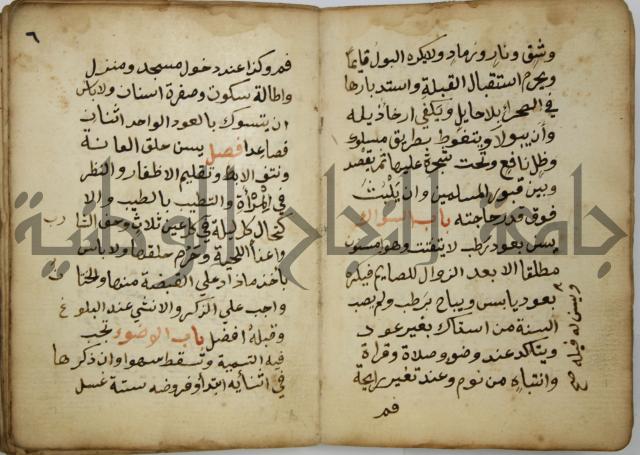 وشق ونار ورماد ولا يكره البول قايما
ويحرم استقبال القبلة واستدبارها
في الصحرا بلا حايل ويكفي ارخا ذيله
وأن يبول او يتغوط بطريق مسلوك
وظل نافع وتحت شجرة عليها ثمر يقصد
وبين قبور المسلمين وان يلبث
فوق قدر حاجته باب السواك
يسن بعود رطب لا يتفتت وهو مسنون
مطلقا الا بعد الزوال للصايم فيكره
ويسن له قبله صح
بعود يابس ويباح برطب ولم يصب
السنة من استاك بغير عود
ويتاكد عند وضو وصلاة وقراة
وانتباه من نوم وعند تغير رايحة
فم
٦
فم وكذا عند دخول مسجد ومنزل
واطالة سكوت وصفرة اسنان ولا باس
ان يتسوك بالعود الواحد اثنان
فصاعدا فصل يسن حلق العانة
ونتف الابط وتقليم الاظفار والنظر
في المرأة والتطيب بالطيب والا
كتحال كل ليلة في كل عين ثلاث وحف الشارب
واعفا اللحية وحرم حلقها ولا باس
بأخذ ما زاد علي القبضة منها والختان
واجب على الذكر والانثي عند البلوغ
وقبله افضل باب الوضوء تجب
فيه التسمية وتسقط سهوا وان ذكرها
في اثنأيه ابتدأ وفروضه ستة غسل
جامعة النجاح الوطنية